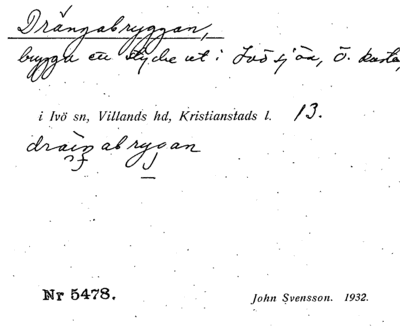 Drängabryggan,
brygga en stycke ut i Ivösjön, Ö. kusten,
i Ivö sn, Villands hd, Kristianstads l. 13.
Nr 5478.
John Svensson. 1932.